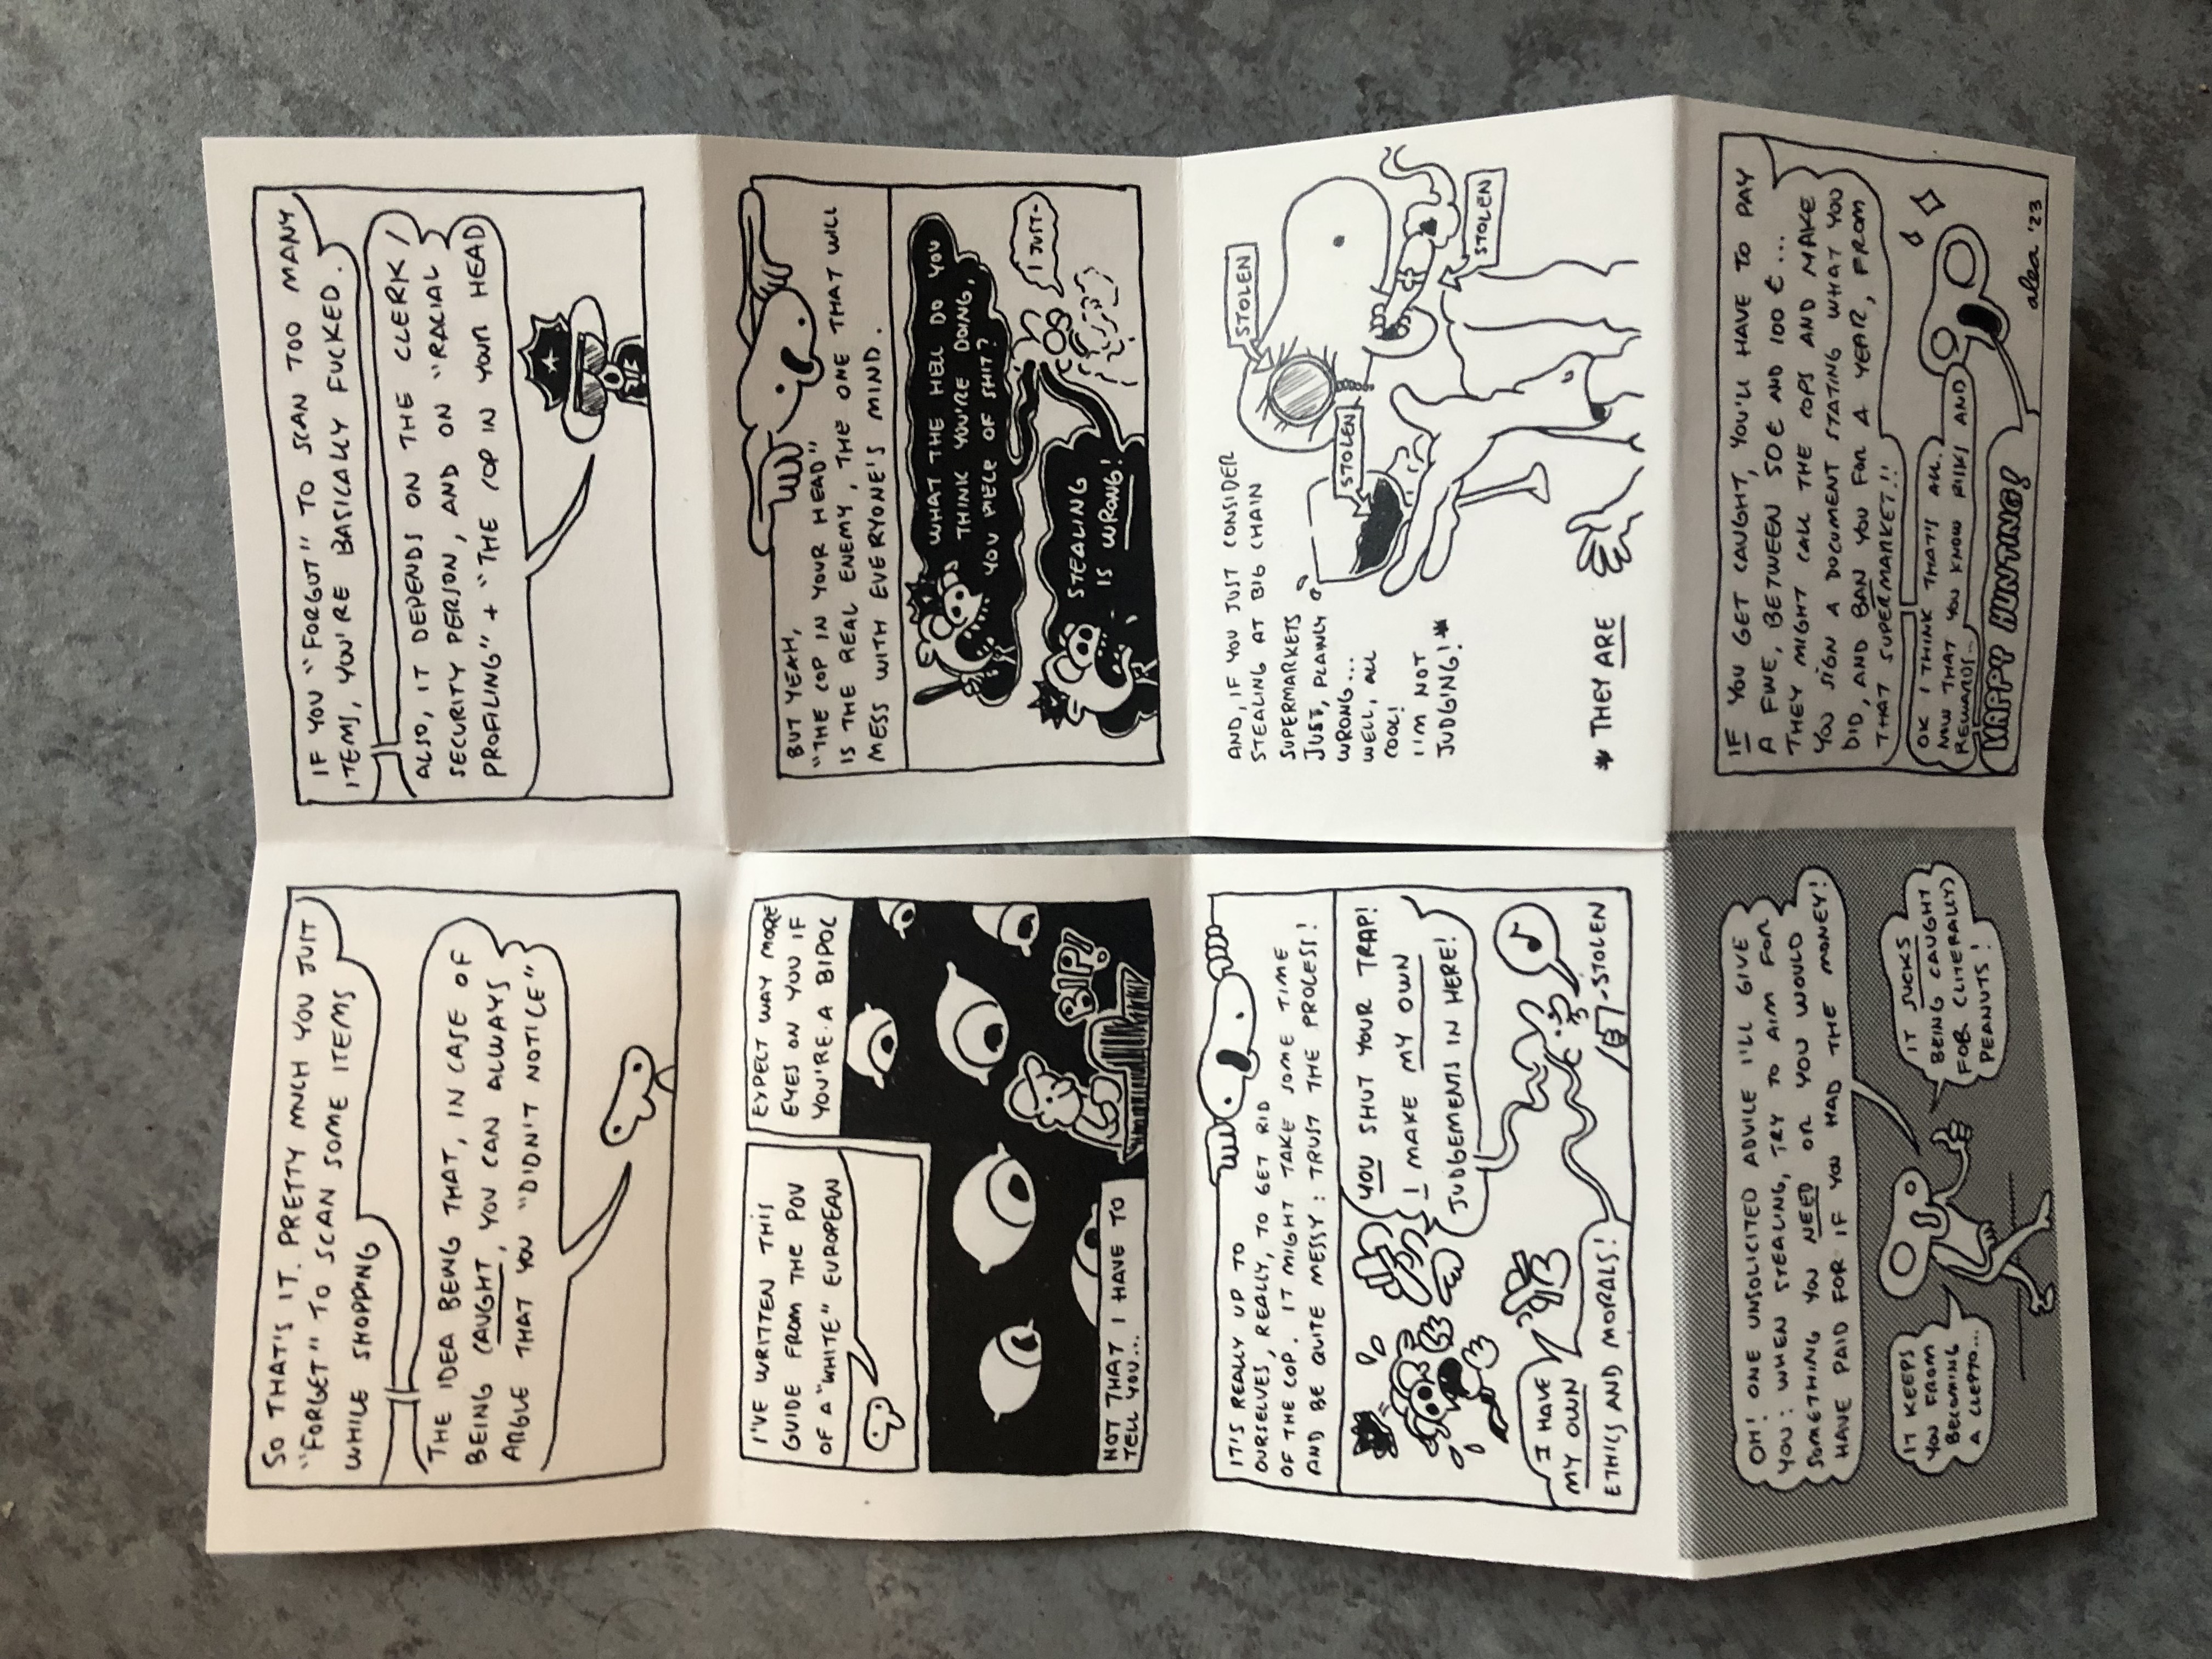 SO THAT'S IT. PRETTY MUCH YOU JUST
"FORGET" TO SCAN SOME ITEMS
WHILE SHOPPING
THE IDEA BEING THAT, IN CASE OF
BEING CAUGHT, YOU CAN ALWAYS
ARGUE THAT YOU "DIDN'T NOTICE"
IF YOU "FORGOT" TO SCAN TOO MANY
ITEMS, YOU'RE BASICALLY FUCKED.
ALSO, IT DEPENDS ON THE CLERK/
SECURITY PERSON, AND ON "RACIAL
PROFILING" + "THE COP IN YOUR HEAD
I'VE WRITTEN THIS
GUIDE FROM THE POV
OF A "WHITE" EUROPEAN
EXPECT WAY MORE
EYES ON YOU IF
YOU'RE A BIPOC
BIP!
NOT THAT I HAVE TO
TELL YOU...
BUT YEAH,
"THE COP IN YOUR HEAD"
IS THE REAL ENEMY, THE ONE THAT WILL
MESS WITH EVERYONE'S MIND.
WHAT THE HELL DO YOU
THINK YOU'RE DOING,
YOU PIECE OF SHIT?
I JUST-
STEALING
IS WRONG!
IT'S REALLY UP TO
OURSELVES, REALLY, TO GET RID
OF THE COP. IT MIGHT TAKE SOME TIME
AND BE QUITE MESSY: TRUST THE PROCESS!
YOU SHUT YOUR TRAP!
I MAKE MY OWN
JUDGEMENTS IN HERE!
I HAVE
MY OWN
ETHICS AND MORALS!
-STOLEN
AND, IF YOU JUST CONSIDER
STEALING AT BIG CHAIN
SUPERMARKETS
JUST, PLAINLY
WRONG...
WELL, ALL
COOL!
I'M NOT
JUDGING!*
STOLEN
STOLEN
STOLEN
* THEY ARE
OH! ONE UNSOLICITED ADVICE I'LL GIVE
YOU: WHEN STEALING, TRY TO AIM FOR
SOMETHING YOU NEED OR YOU WOULD
HAVE PAID FOR IF YOU HAD THE MONEY!
IT KEEPS
YOU FROM
BECOMING
A CLEPTO...
IT SUCKS
BEING CAUGHT
FOR (LITERALLY)
PEANUTS!
IF YOU GET CAUGHT, YOU'LL HAVE TO PAY
A FINE, BETWEEN 50€ AND 100€...
THEY MIGHT CALL THE COPS AND MAKE
YOU SIGN A DOCUMENT STATING WHAT YOU
DID, AND BAN YOU FOR A YEAR, FROM
THAT SUPERMARKET!!
OK I THINK THAT'S ALL.
NOW THAT YOU KNOW RISKS AND
REWARDS...
HAPPY HUNTING!
alea '23